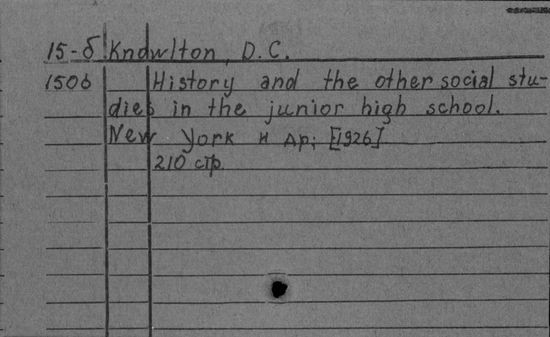 15-δ Knowlton, D.C.
1506 History and the other social stu-
dies in the junior high school.
New York и др; [1926]
210 стр.